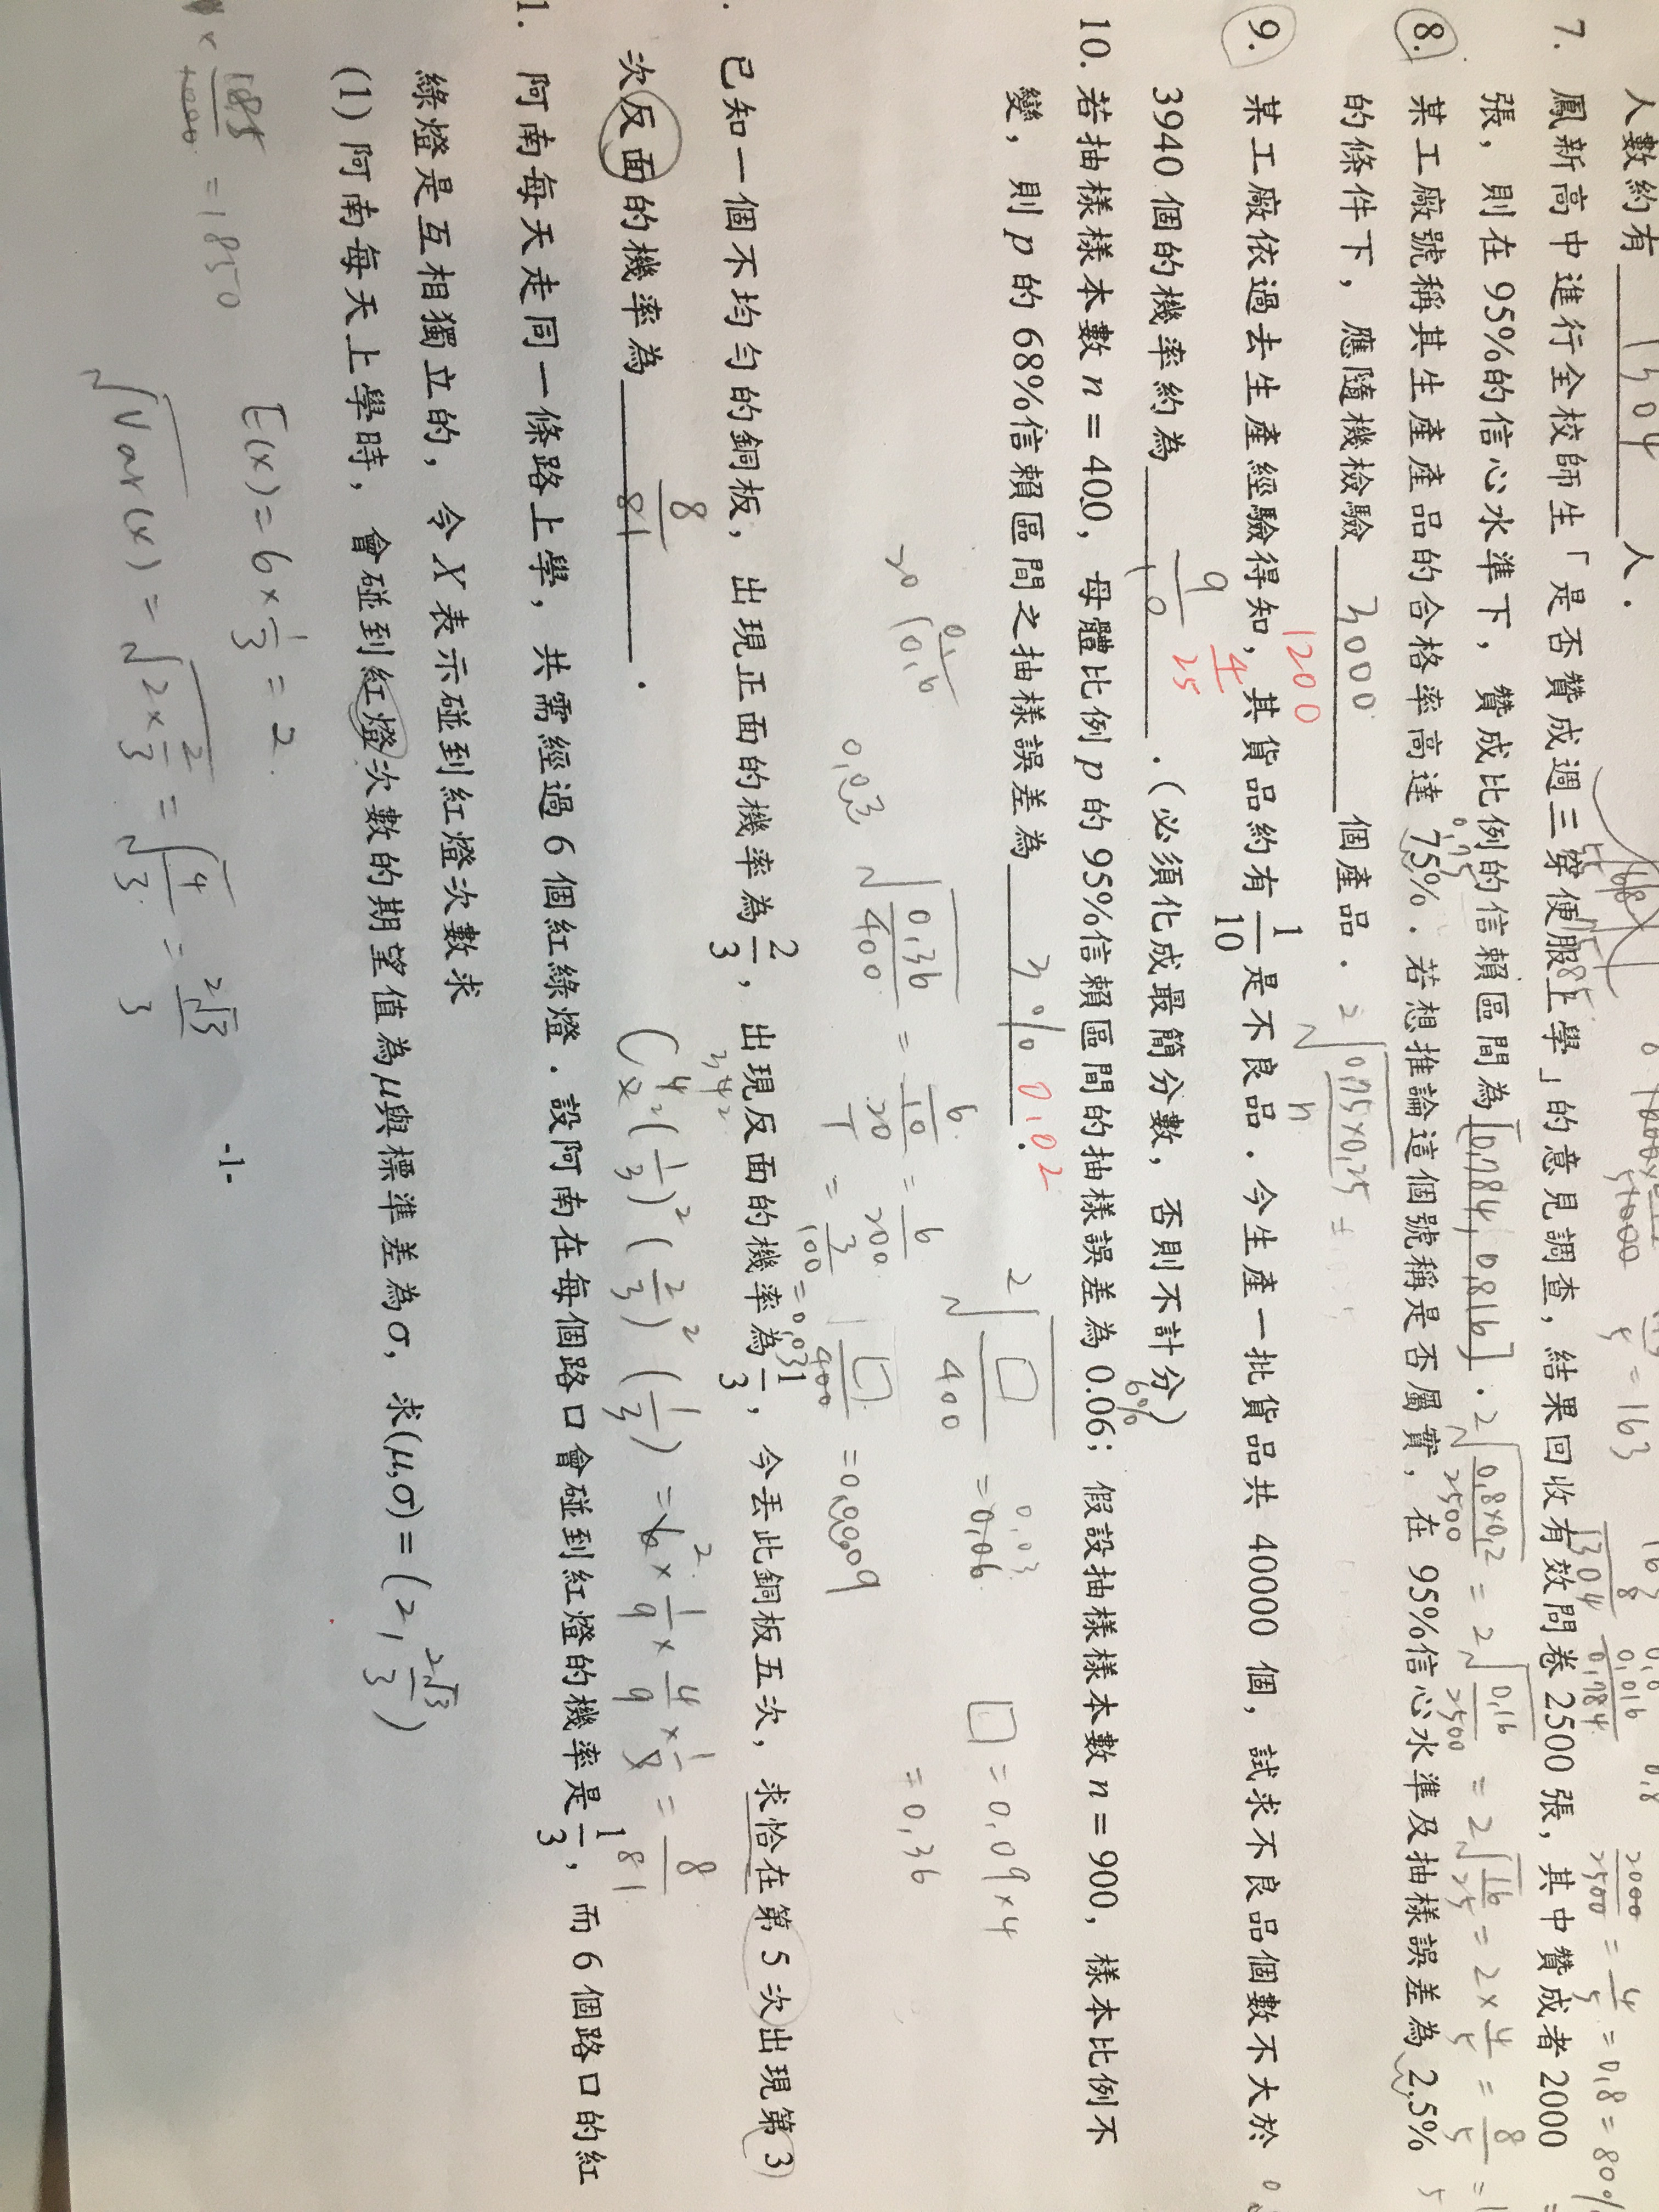 人數約有 1304 人．
7. 鳳新高中進行全校師生「是否贊成週三穿便服上學」的意見調查，結果回收有效問卷 2500 張，其中贊成者 2000
張，則在 95%的信心水準下，贊成比例的信賴區間為 [0.784, 0.816]．
2√(0.8×0.2/2500) = 2√(0.16/2500) = 2√16/25 = 2×4/5 = 8/5
2000/2500 = 4/5 = 0.8 = 80%
8. 某工廠號稱其生產產品的合格率高達 75%．若想推論這個號稱是否屬實，在 95%信心水準及抽樣誤差為 2.5%
的條件下，應隨機檢驗 3000 個產品．
1200
2√(0.75×0.25/n) =
9. 某工廠依過去生產經驗得知，其貨品約有 1/10 是不良品．今生產一批貨品共 40000 個，試求不良品個數不大於
3940 個的機率約為 9/10 ．（必須化成最簡分數，否則不計分）
4/25
10. 若抽樣樣本數 n = 400，母體比例 p 的 95%信賴區間的抽樣誤差為 0.06；假設抽樣樣本數 n = 900，樣本比例不
6%
變，則 p 的 68%信賴區間之抽樣誤差為 3% ．
0.02
2√(□/400) = 0.06
0.03
□ = 0.09×4
= 0.36
□/400 = 0.0009
√(0.36/400) = 6/10/20 = 6/200
= 3/100 = 0.03
0.03
20
. 已知一個不均勻的銅板，出現正面的機率為 2/3，出現反面的機率為 1/3，今丟此銅板五次，求恰在第 5 次出現第 3
次反面的機率為 8/81 ．
C 4 2 (1/3)² (2/3)² (1/3) = 6 × 1/9 × 4/9 × 1/3 = 8/81
1. 阿南每天走同一條路上學，共需經過 6 個紅綠燈．設阿南在每個路口會碰到紅燈的機率是 1/3，而 6 個路口的紅
綠燈是互相獨立的，令 X 表示碰到紅燈次數求
(1) 阿南每天上學時，會碰到紅燈次數的期望值為 μ 與標準差為 σ，求(μ,σ) = (2, 2√3/3)
E(x) = 6×1/3 = 2
= 1850
√Var(x) = √(2×2/3) = √(4/3) = 2√3/3
-1-